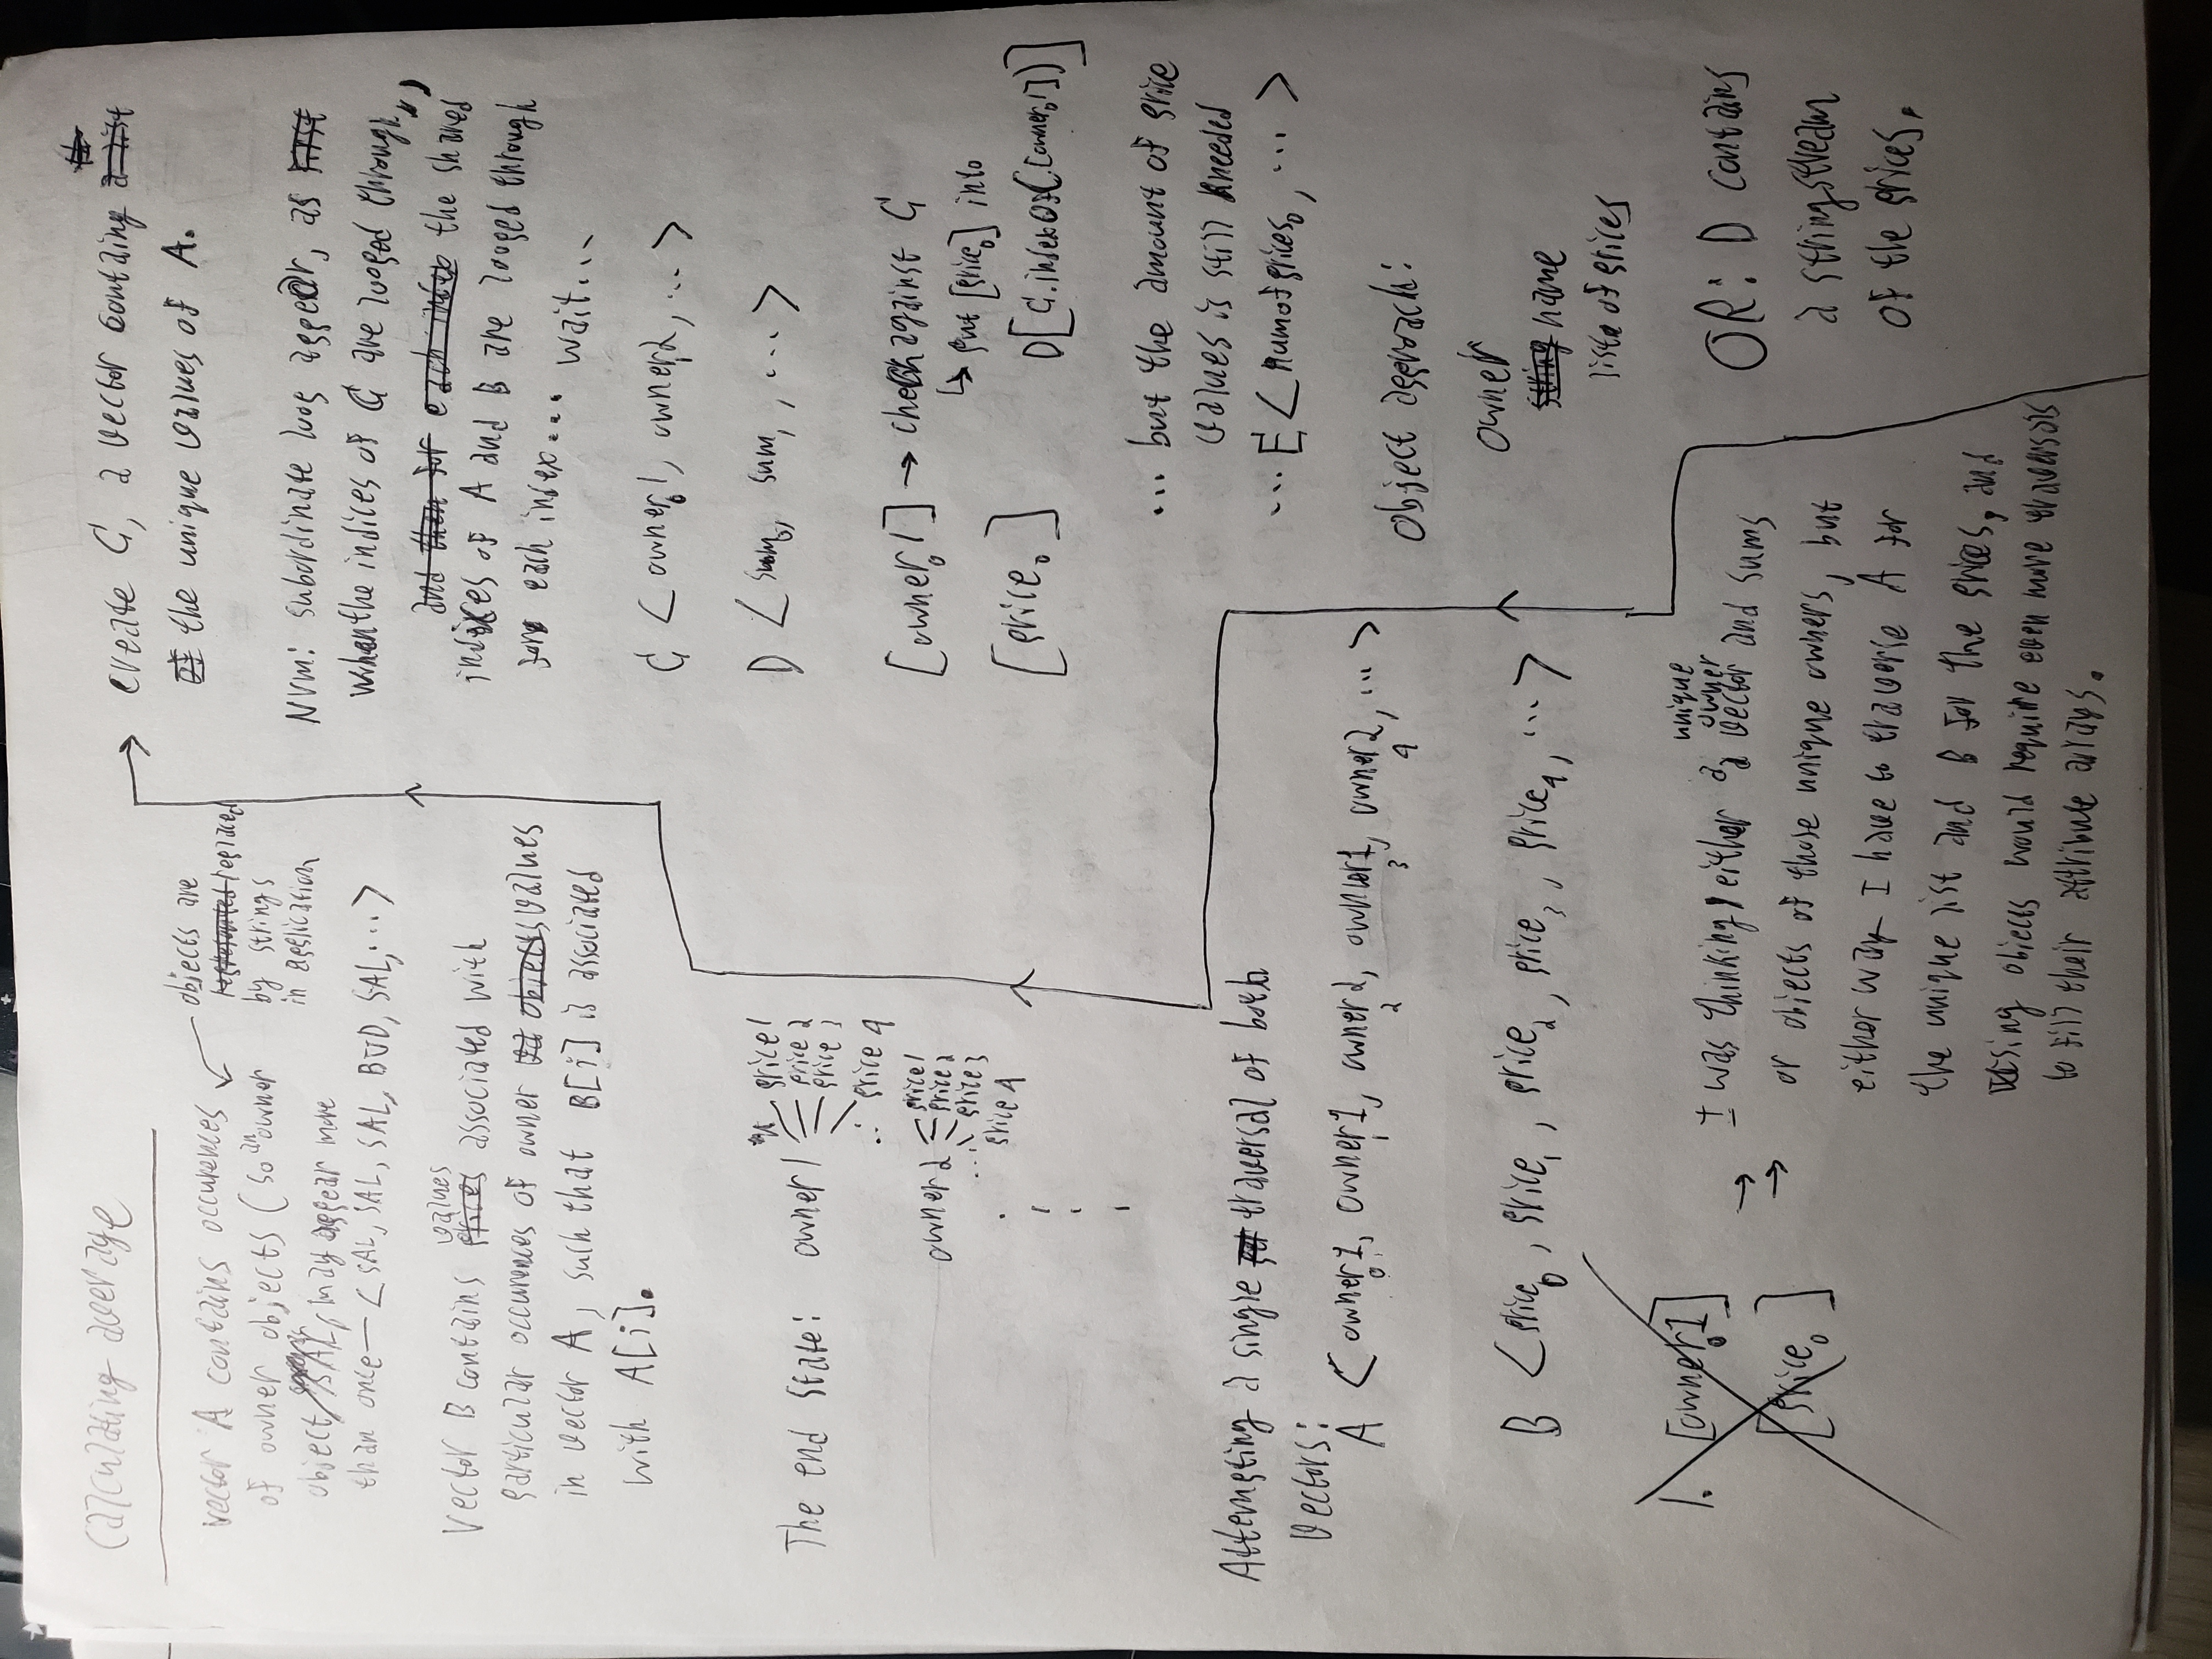 Calculating average
vector A contains occurences
of owner objects (so an owner
object, SAL, may appear more
than once — < SAL, SAL, SAL, BUD, SAL, ... >
objects are
represented replaced
by strings
in application
Vector B contains prices values associated with
particular occurences of owner objects values
in vector A, such that B[i] is associated
with A[i].
The end state: owner1
price1
price 2
price 3
... price 4
owner2
price1
price2
... price3
price 4
Attempting a single traversal of both
Vectors:
A < owner1, owner1, owner2, owner1, owner2, ... >
0 1 2 3 4
B < price0, price1, price2, price3, price4, ... >
1. [owner01]
[price0]
→
→
I was thinking, either a unique owner vector and sums
or objects of those unique owners, but
either way I have to traverse A for
the unique list and B for the prices, and
using objects would require even more traversals
to fill their attribute arrays.
create C, a vector containg a list
of the unique values of A.
Nvm: subordinate loop appear, as first
when the indices of C are looped through,
and then for each index the shared
indices of A and B are looped through
for each index... wait...
C < owner01, owner12, ... >
D < sum0, sum1, ... >
[owner01] → check against C
↳ put [price0] into
[price0]
D[C.indexOf([owner01])]
... but the amount of price
values is still needed
... E < numofprices0, ... >
Object approach:
owner
string name
list of prices
OR: D contains
a stringstream
of the prices.